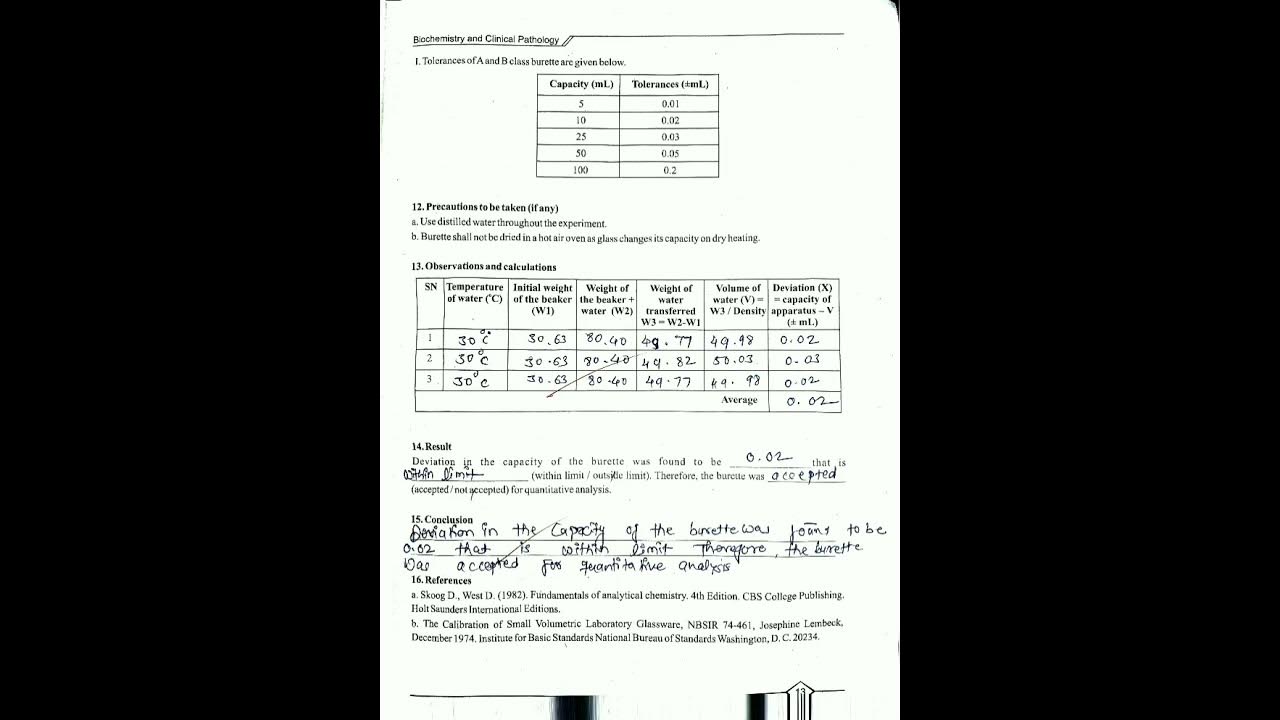 Biochemistry and Clinical Pathology
1. Tolerances of A and B class burette are given below.
Capacity (mL) Tolerances (±mL)
5 0.01
10 0.02
25 0.03
50 0.05
100 0.2
12. Precautions to be taken (if any)
a. Use distilled water throughout the experiment.
b. Burette shall not be dried in a hot air oven as glass changes its capacity on dry heating.
13. Observations and calculations
SN Temperature of water (°C) Initial weight of the beaker (W1) Weight of the beaker + water (W2) Weight of water transferred W3 = W2-W1 Volume of water (V) = W3 / Density Deviation (X) = capacity of apparatus – V (± mL)
1 30°C 30.63 80.40 49.77 49.98 0.02
2 30°C 30.63 80.40 49.82 50.03 0.03
3 30°C 30.63 80.40 49.77 49.98 0.02
Average 0.02
14. Result
Deviation in the capacity of the burette was found to be 0.02 that is
within limit (within limit / outside limit). Therefore, the burette was accepted
(accepted / not accepted) for quantitative analysis.
15. Conclusion
Deviation in the Capacity of the burette was to be
0.02 that is within limit Therefore, the burette
was accepted for quantitative analysis
16. References
a. Skoog D., West D. (1982). Fundamentals of analytical chemistry. 4th Edition. CBS College Publishing.
Holt Saunders International Editions.
b. The Calibration of Small Volumetric Laboratory Glassware, NBSIR 74-461, Josephine Lembeck,
December 1974. Institute for Basic Standards National Bureau of Standards Washington, D. C. 20234.
13